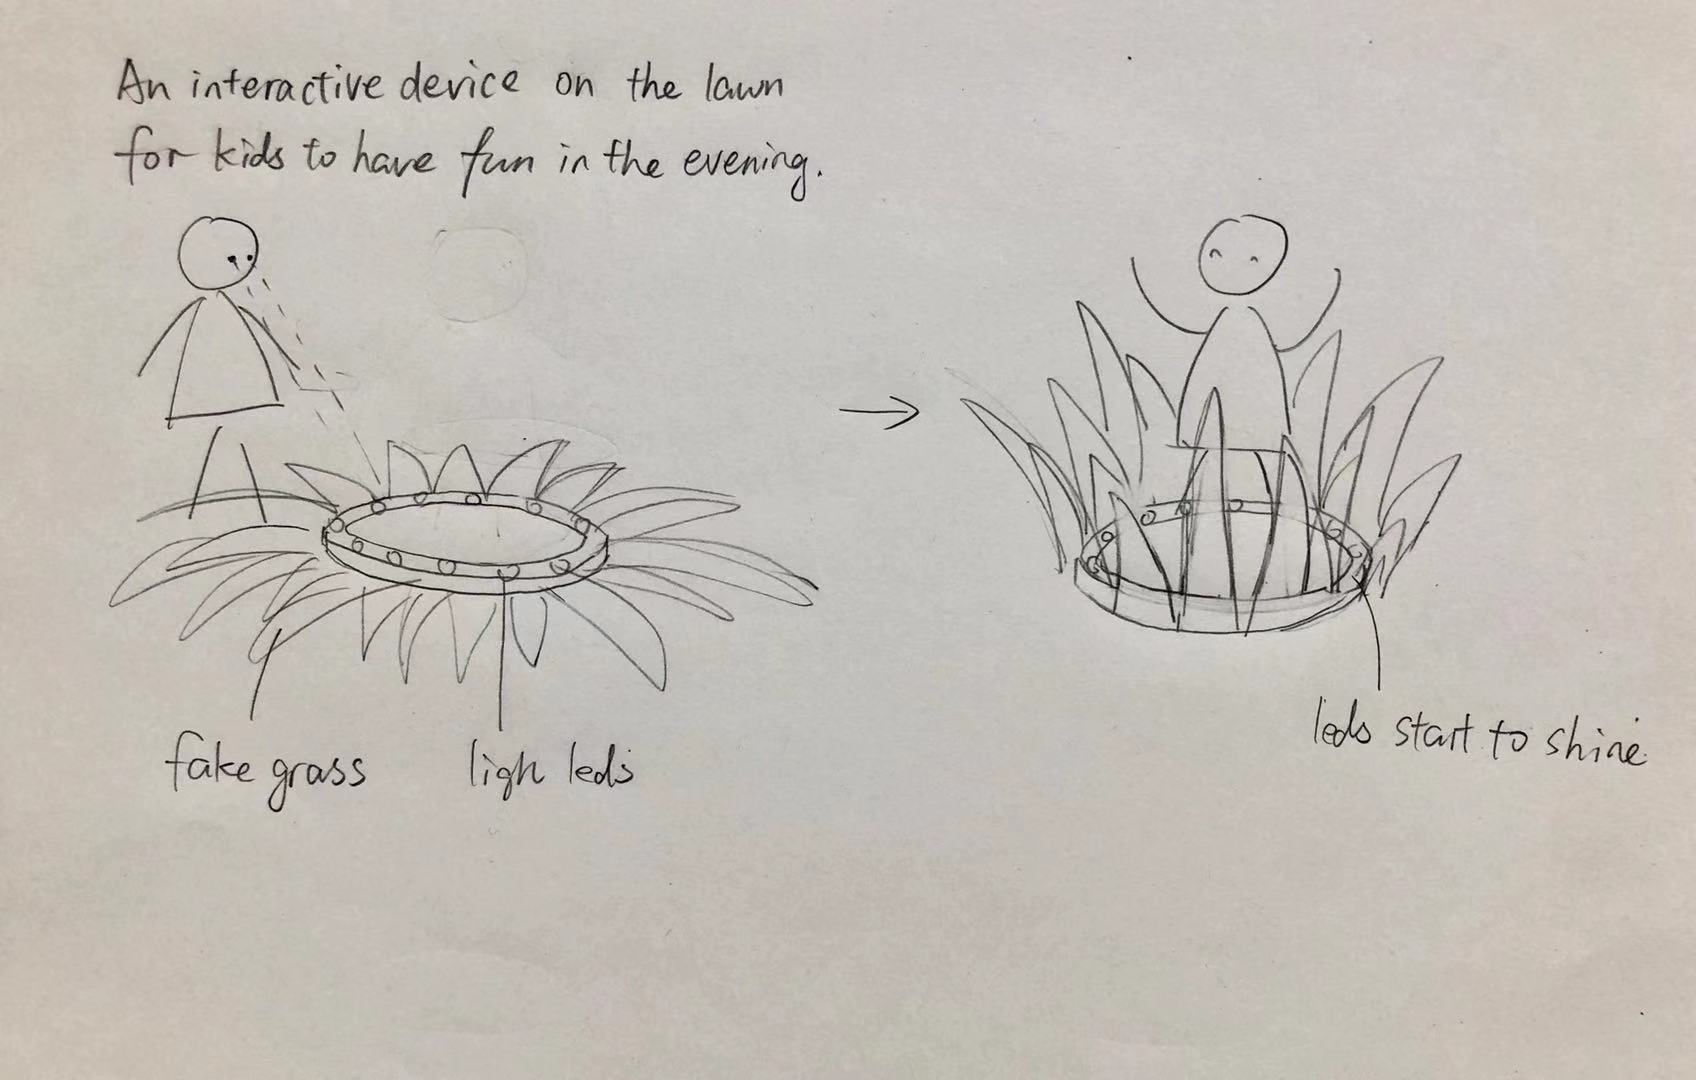 An interactive device on the lawn
for kids to have fun in the evening.
fake grass
ligh leds
leds start to shine